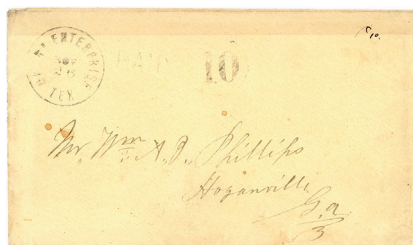 MT ENTERPRISE
NOV
TEX
PAID
10
Mr. Wm. A. D. Phillips
Hoganville
Ga
3